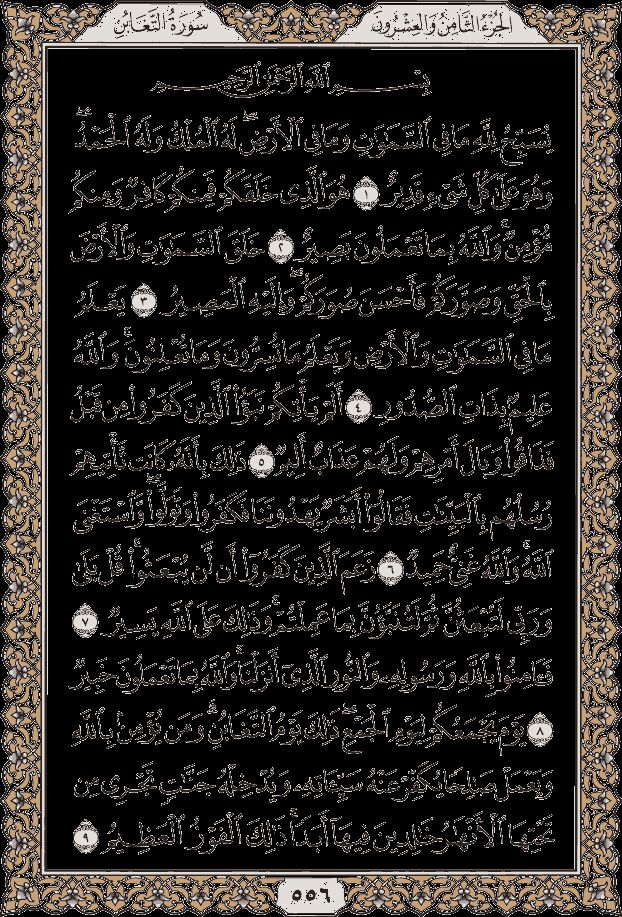 سُورَةُ التَّغَابُنِ
الجُزْءُ الثَّامِنُ وَالعِشْرُونَ
بِسْمِ ٱللَّهِ ٱلرَّحْمَٰنِ ٱلرَّحِيمِ
يُسَبِّحُ لِلَّهِ مَا فِي ٱلسَّمَٰوَٰتِ وَمَا فِي ٱلْأَرْضِۖ لَهُ ٱلْمُلْكُ وَلَهُ ٱلْحَمْدُۖ
وَهُوَ عَلَىٰ كُلِّ شَيْءٍ قَدِيرٌ ١ هُوَ ٱلَّذِي خَلَقَكُمْ فَمِنكُمْ كَافِرٌ وَمِنكُم
مُّؤْمِنٌۚ وَٱللَّهُ بِمَا تَعْمَلُونَ بَصِيرٌ ٢ خَلَقَ ٱلسَّمَٰوَٰتِ وَٱلْأَرْضَ
بِٱلْحَقِّ وَصَوَّرَكُمْ فَأَحْسَنَ صُوَرَكُمْۖ وَإِلَيْهِ ٱلْمَصِيرُ ٣ يَعْلَمُ
مَا فِي ٱلسَّمَٰوَٰتِ وَٱلْأَرْضِ وَيَعْلَمُ مَا تُسِرُّونَ وَمَا تُعْلِنُونَۚ وَٱللَّهُ
عَلِيمٌۢ بِذَاتِ ٱلصُّدُورِ ٤ أَلَمْ يَأْتِكُمْ نَبَؤُاْ ٱلَّذِينَ كَفَرُواْ مِن قَبْلُ
فَذَاقُواْ وَبَالَ أَمْرِهِمْ وَلَهُمْ عَذَابٌ أَلِيمٌ ٥ ذَٰلِكَ بِأَنَّهُۥ كَانَت تَّأْتِيهِمْ
رُسُلُهُم بِٱلْبَيِّنَٰتِ فَقَالُوٓاْ أَبَشَرٌ يَهْدُونَنَا فَكَفَرُواْ وَتَوَلَّواْۖ وَّٱسْتَغْنَى
ٱللَّهُۚ وَٱللَّهُ غَنِيٌّ حَمِيدٌ ٦ زَعَمَ ٱلَّذِينَ كَفَرُوٓاْ أَن لَّن يُبْعَثُواْۚ قُلْ بَلَىٰ
وَرَبِّي لَتُبْعَثُنَّ ثُمَّ لَتُنَبَّؤُنَّ بِمَا عَمِلْتُمْۚ وَذَٰلِكَ عَلَى ٱللَّهِ يَسِيرٌ ٧
فَـَٔامِنُواْ بِٱللَّهِ وَرَسُولِهِۦ وَٱلنُّورِ ٱلَّذِيٓ أَنزَلْنَاۚ وَٱللَّهُ بِمَا تَعْمَلُونَ خَبِيرٌ
٨ يَوْمَ يَجْمَعُكُمْ لِيَوْمِ ٱلْجَمْعِۖ ذَٰلِكَ يَوْمُ ٱلتَّغَابُنِۗ وَمَن يُؤْمِنۢ بِٱللَّهِ
وَيَعْمَلْ صَٰلِحًا يُكَفِّرْ عَنْهُ سَيِّـَٔاتِهِۦ وَيُدْخِلْهُ جَنَّٰتٍ تَجْرِي مِن
تَحْتِهَا ٱلْأَنْهَٰرُ خَٰلِدِينَ فِيهَآ أَبَدًاۚ ذَٰلِكَ ٱلْفَوْزُ ٱلْعَظِيمُ ٩
٥٥٦